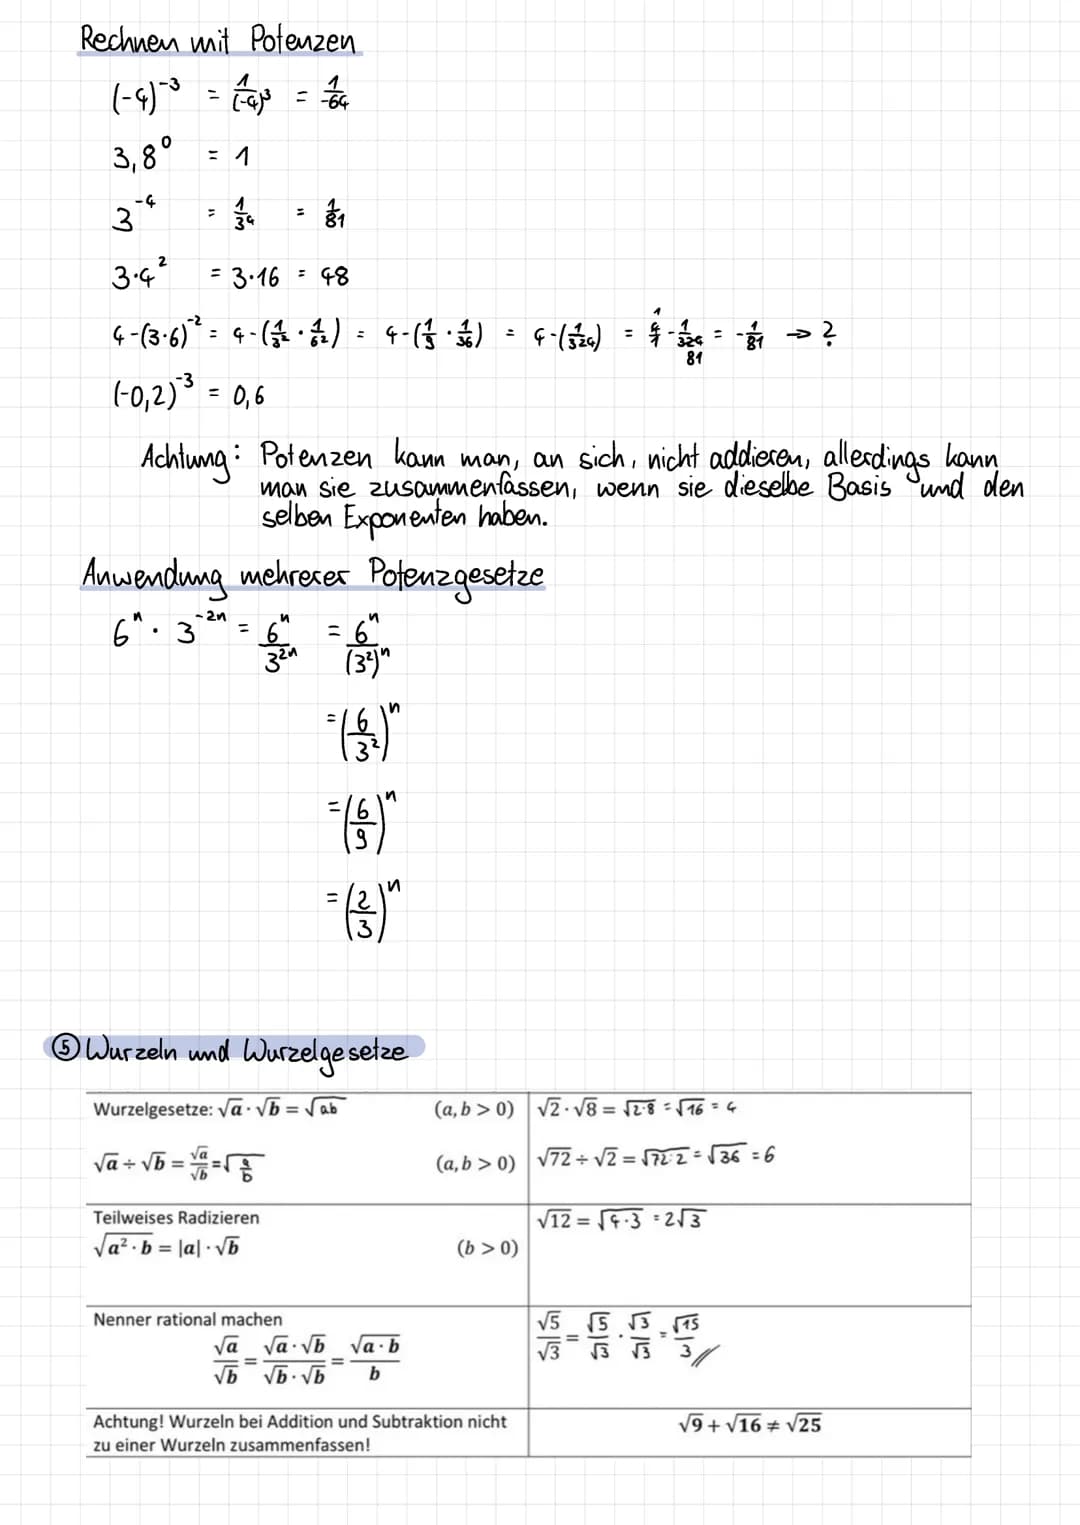 Rechnen mit Potenzen
(-4)⁻³ = 1/(-4)³ = 1/-64
3,8⁰ = 1
3⁻⁴ = 1/3⁴ = 1/81
3·4² = 3·16 = 48
4-(3·6)⁻² = 4-(1/3² · 1/6²) = 4-(1/9 · 1/36) = 4-(1/324) = 4/1 - 1/324 = -1/81 → ?
1
81
(-0,2)⁻³ = 0,6
Achtung: Potenzen kann man, an sich, nicht addieren, allerdings kann
man sie zusammenfassen, wenn sie dieselbe Basis und den
selben Exponenten haben.
Anwendung mehrerer Potenzgesetze
6ⁿ · 3⁻²ⁿ = 6ⁿ/3²ⁿ = 6ⁿ/(3²)ⁿ
= (6/3²)ⁿ
= (6/9)ⁿ
= (2/3)ⁿ
⑤ Wurzeln und Wurzelgesetze
Wurzelgesetze: √a · √b = √ab (a, b > 0) √2 · √8 = √2·8 = √16 = 4
√a ÷ √b = √a/√b = √(a/b) (a, b > 0) √72 ÷ √2 = √72:2 = √36 = 6
Teilweises Radizieren √12 = √4·3 = 2√3
√a² · b = |a| · √b (b > 0)
Nenner rational machen
√a/√b = √a · √b/√b · √b = √a · b/b √5/√3 = √5/√3 · √3/√3 = √15/3
Achtung! Wurzeln bei Addition und Subtraktion nicht √9 + √16 ≠ √25
zu einer Wurzeln zusammenfassen!